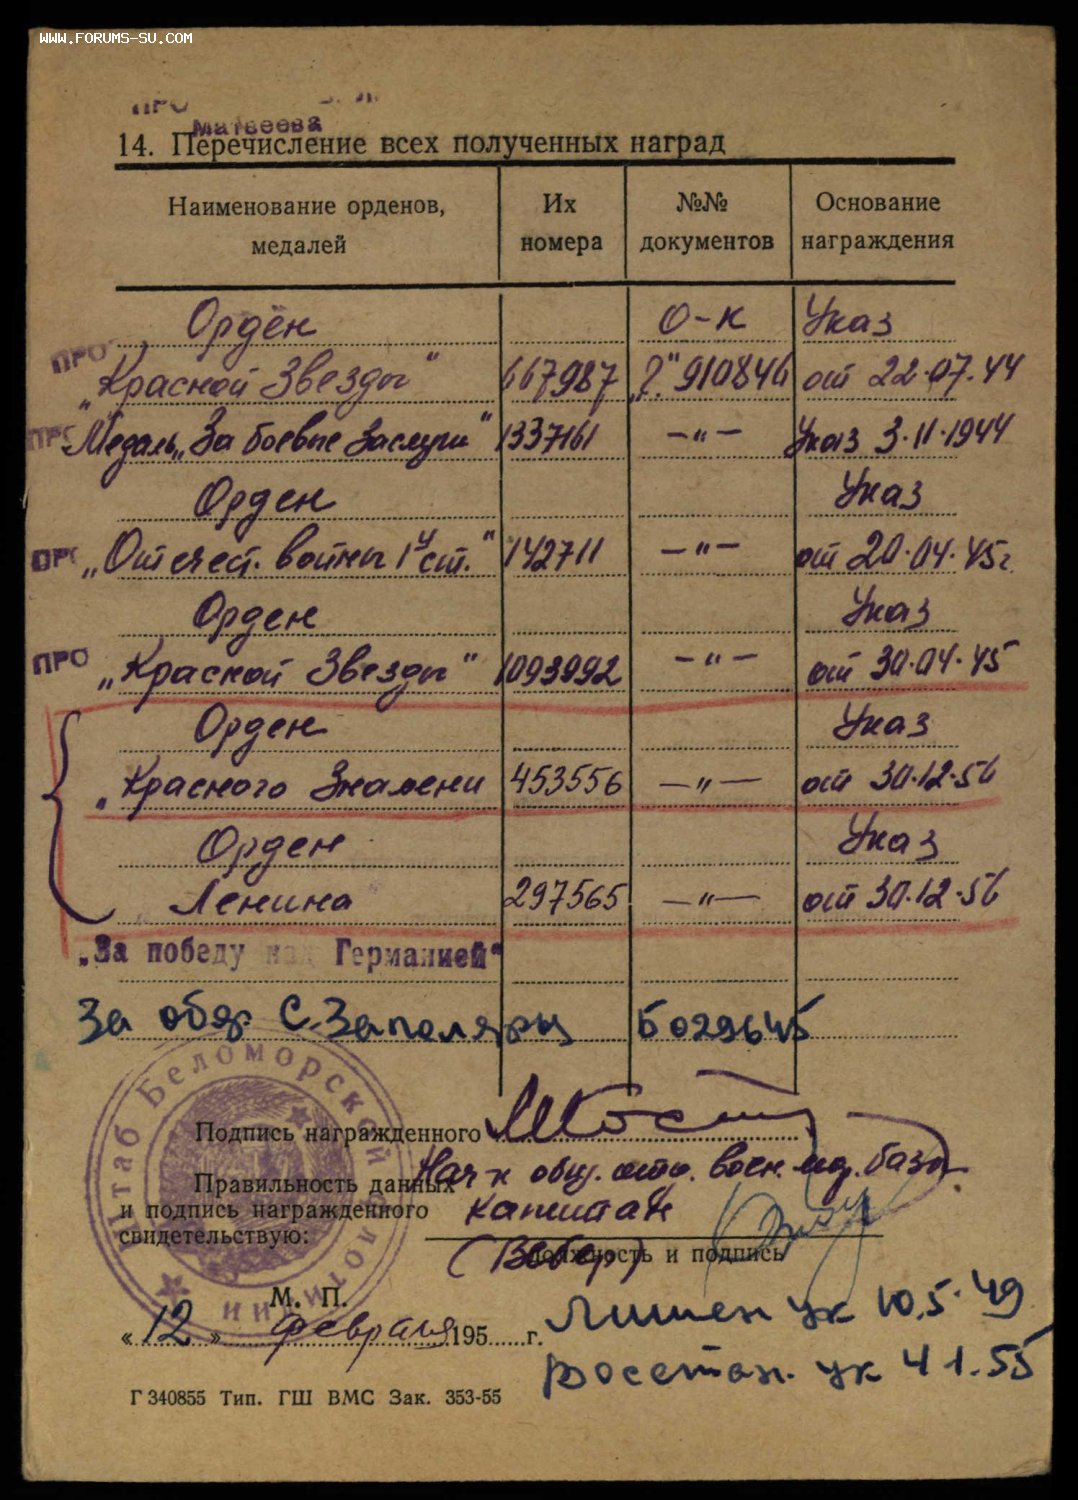 WWW.FORUMS-SU.COM
ПРО
Матвеева
14. Перечисление всех полученных наград
Наименование орденов, медалей
Их номера
№№ документов
Основание награждения
Орден О-к Указ
ПРО „Красной Звезды" 667987 910846 от 22.07.44
ПРО Медаль „За боевые заслуги" 1337161 —"— Указ 3.11.1944
Орден Указ
ПРО „Отечест. войны 1й ст." 142711 —"— от 20.04.45г.
Орден Указ
ПРО „Красной Звезды" 1093992 —"— от 30.04.45
Орден Указ
„Красного Знамени 453556 —"— от 30.12.56
Орден Указ
Ленина 297565 —"— от 30.12.56
„За победу над Германией"
За обор. С. Заполярья Б029645
Штаб Беломорской Флотилии
Подпись награжденного
Правильность данных и подпись награжденного свидетельствую:
Нач-к общ. воен. мор. базы
капитан
(Вебер)
Должность и подпись
М. П.
«12» февраля 195 г.
Лишен ук 10.5.49
восстан. ук 4 1.55
Г 340855 Тип. ГШ ВМС Зак. 353-55